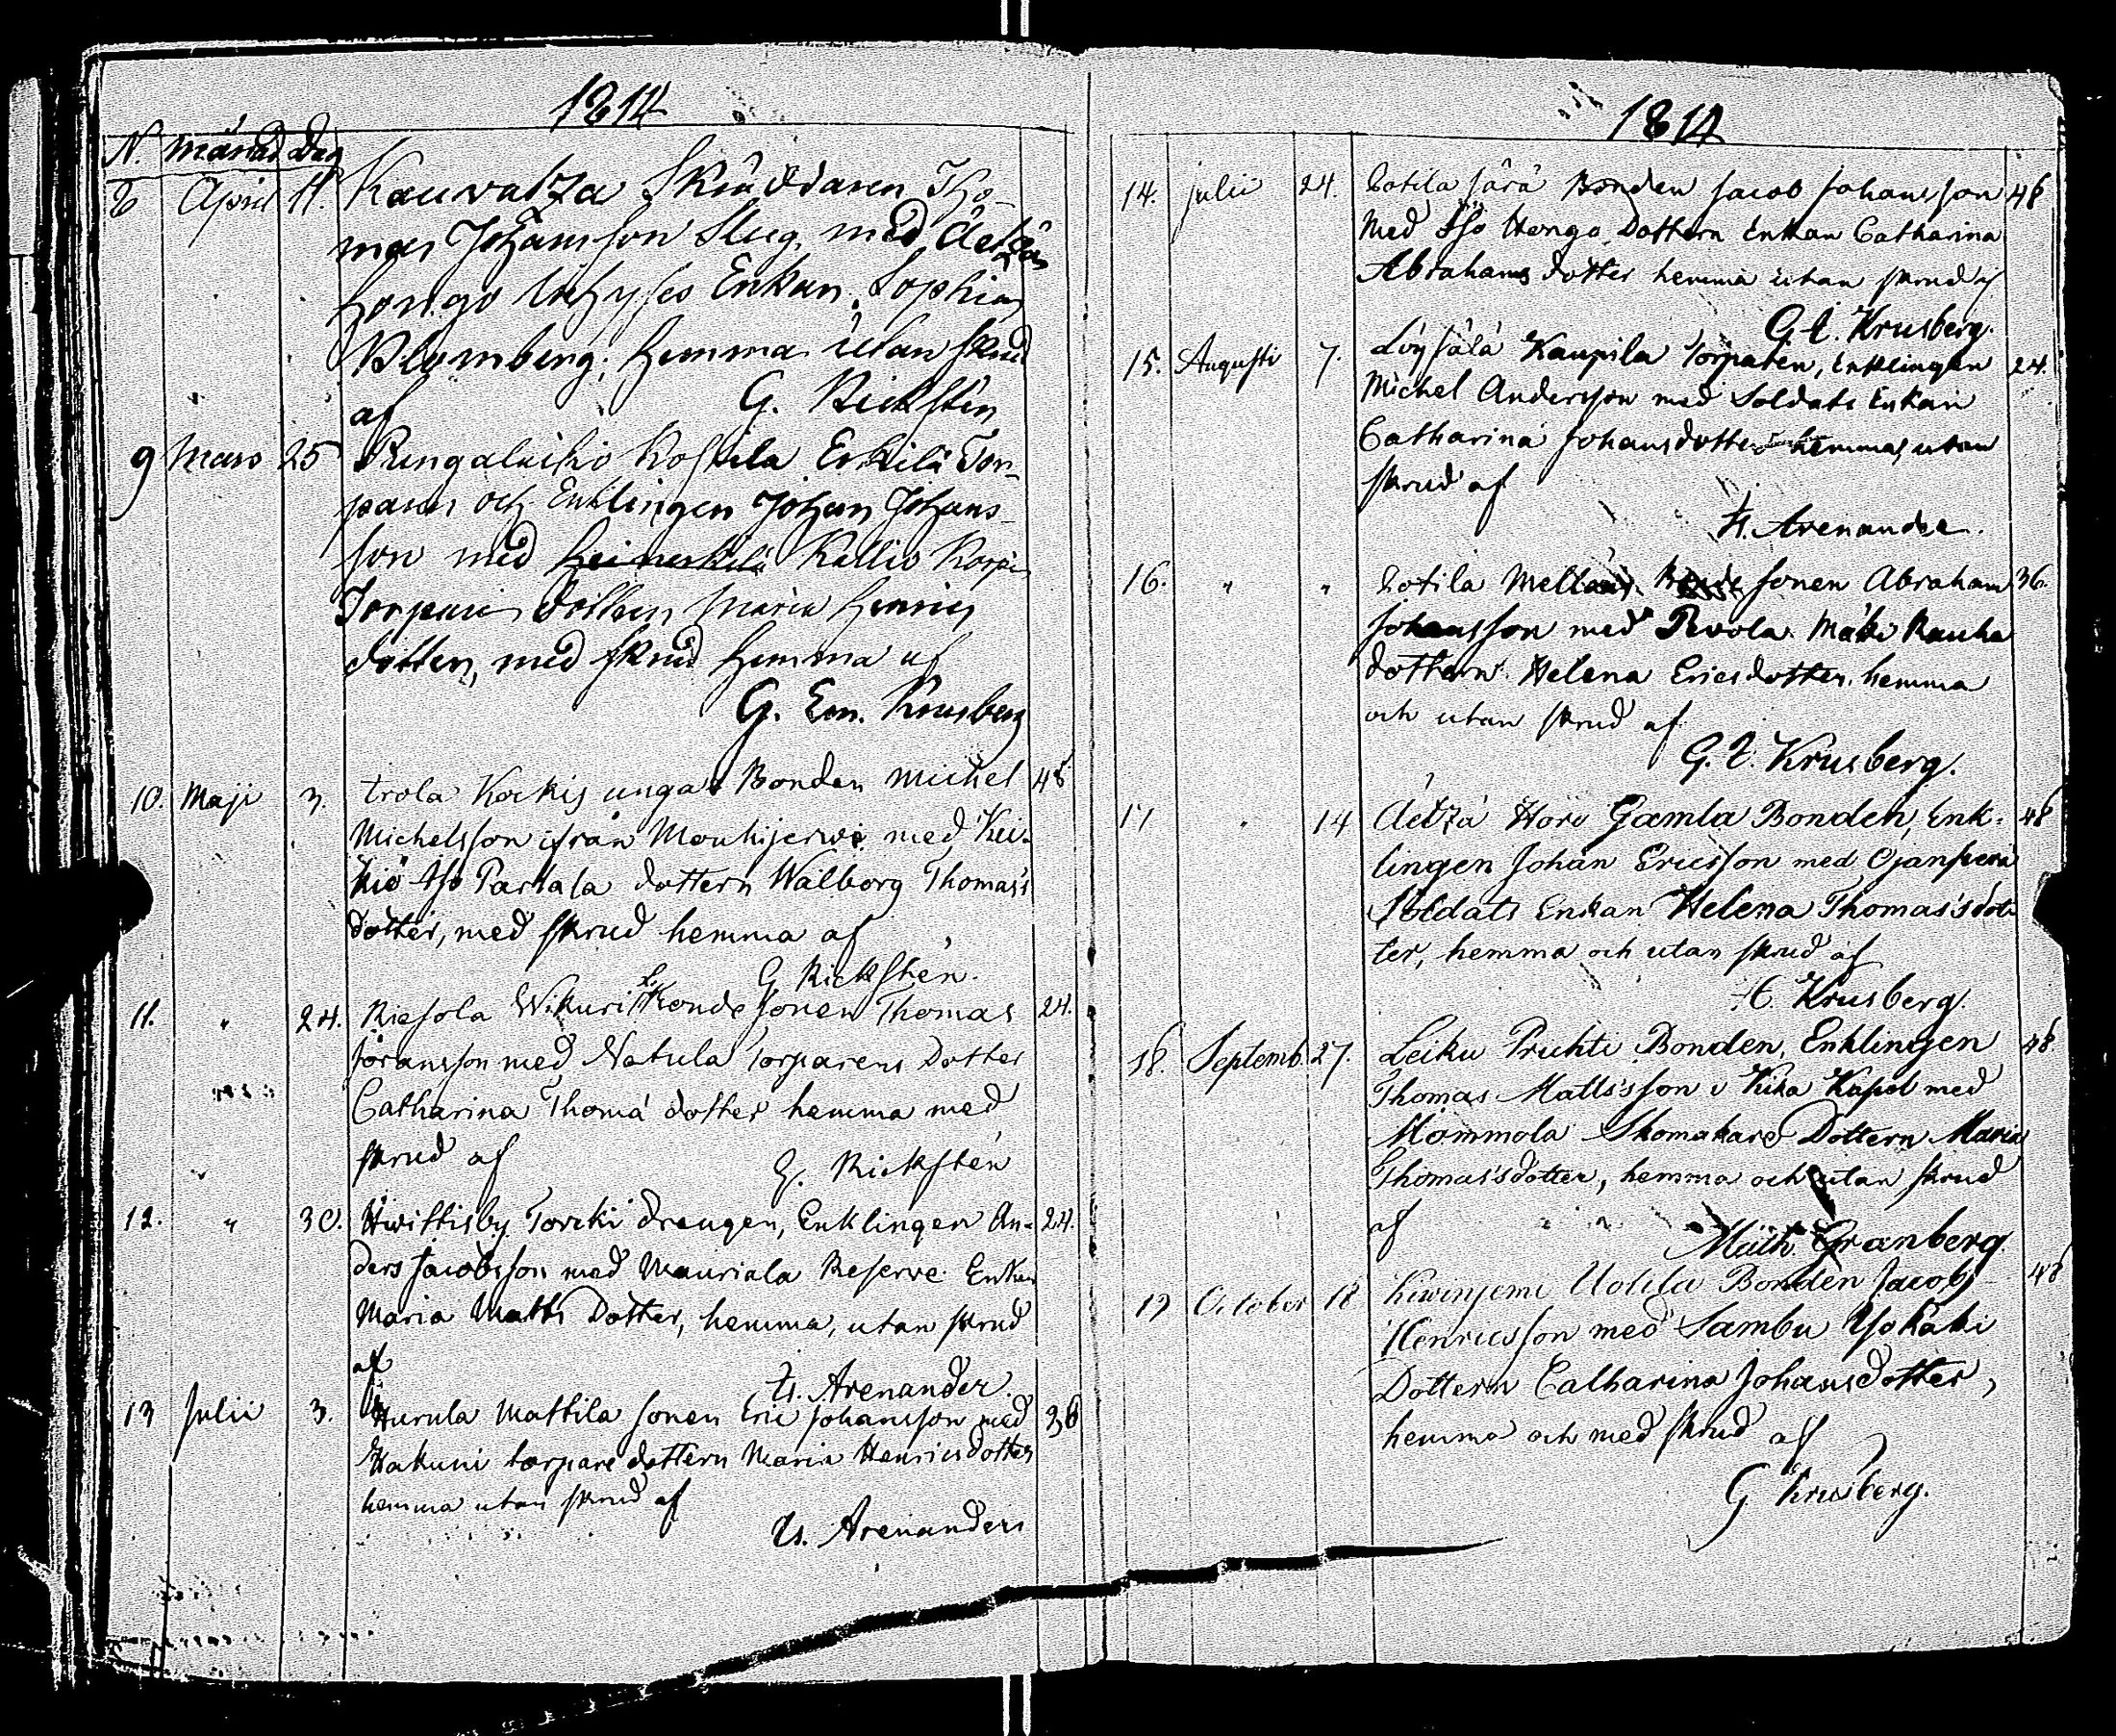 1814
N. månad Dag
8 April 11. Kauvatza Skräddaren Tho-
mas Johansson Slug, med Äetzä
Hongo Inhyses Enkan Sophia
Blomberg; hemma utan skrud
af G. Rickstén
9 Mars 25 Pungalaitio Kostula Erkilä Tor-
paren och Enklingen Johan Johans-
son med Kallio Korpi
Torpare dottren Maria Henrics
dotter, med skrud hemma af
G. Em. Krusberg
10. Maji 3. Trola Kockis unga Bonden Michel 48
Michelsson ifrån Mouhijerwi med Kei-
kiö Iso Partala dottern Walborg Thomas's
dotter, med skrud hemma af
G Rickstén.
11. " 24. Riesola Wikuri Bonde sonen Thomas 24.
Göransson med Natula Torparens Dotter
Catharina Thomä dotter hemma med
skrud af G. Rickstén
12. " 30. Hwittisby Torcki drengen, Enklingen An- 24.
ders Jacobsson med Mauriala Reserve Enkan
Maria Matts Dotter, hemma, utan skrud
af
Is. Arenander.
13 Julii 3. Hurula Mattila sonen Eric Johansson med 36
Hakuni torpare dottern Maria Henricsdotter
hemma utan skrud af
Is. Arenander
1814
14. Julii 24. Cotila Särä Bonden Jacob Johansson 48
med Iso Hongo Dottern Enkan Catharina
Abrahams dotter hemma utan skrud af
G. E. Krusberg.
15. Augusti 7. Löysälä Kaupila Torparen, Enklingen 24.
Michel Andersson med Soldats Enkan
Catharina Johansdotter hemma, utan
skrud af
Is. Arenander.
16. " " Cotila Sonen Abraham 36.
Johansson med Pevola Mäki Rauha
dottern Helena Ericsdotter hemma
och utan skrud af
G. E. Krusberg.
17 " 14 Äetzä Horo Gamla Bonden, Enk- 48
lingen Johan Ericsson med Ojanperä
Soldats Enkan Helena Thomas'sdot-
ter, hemma och utan skrud af
E. Krusberg.
18. Septemb. 27. Leiku Pruhti Bonden, Enklingen 48
Thomas Matts'sson i Kika Kapel med
Mommola Skomakare Dottern Maria
Thomas'sdotter, hemma och utan skrud
af
Math. Granberg.
19 October 18 Kiwinjemi Uotila Bonden Jacob 48
Henricsson med Sambu Ysokäki
Dottern Catharina Johansdotter,
hemma och med skrud af
G Krusberg.